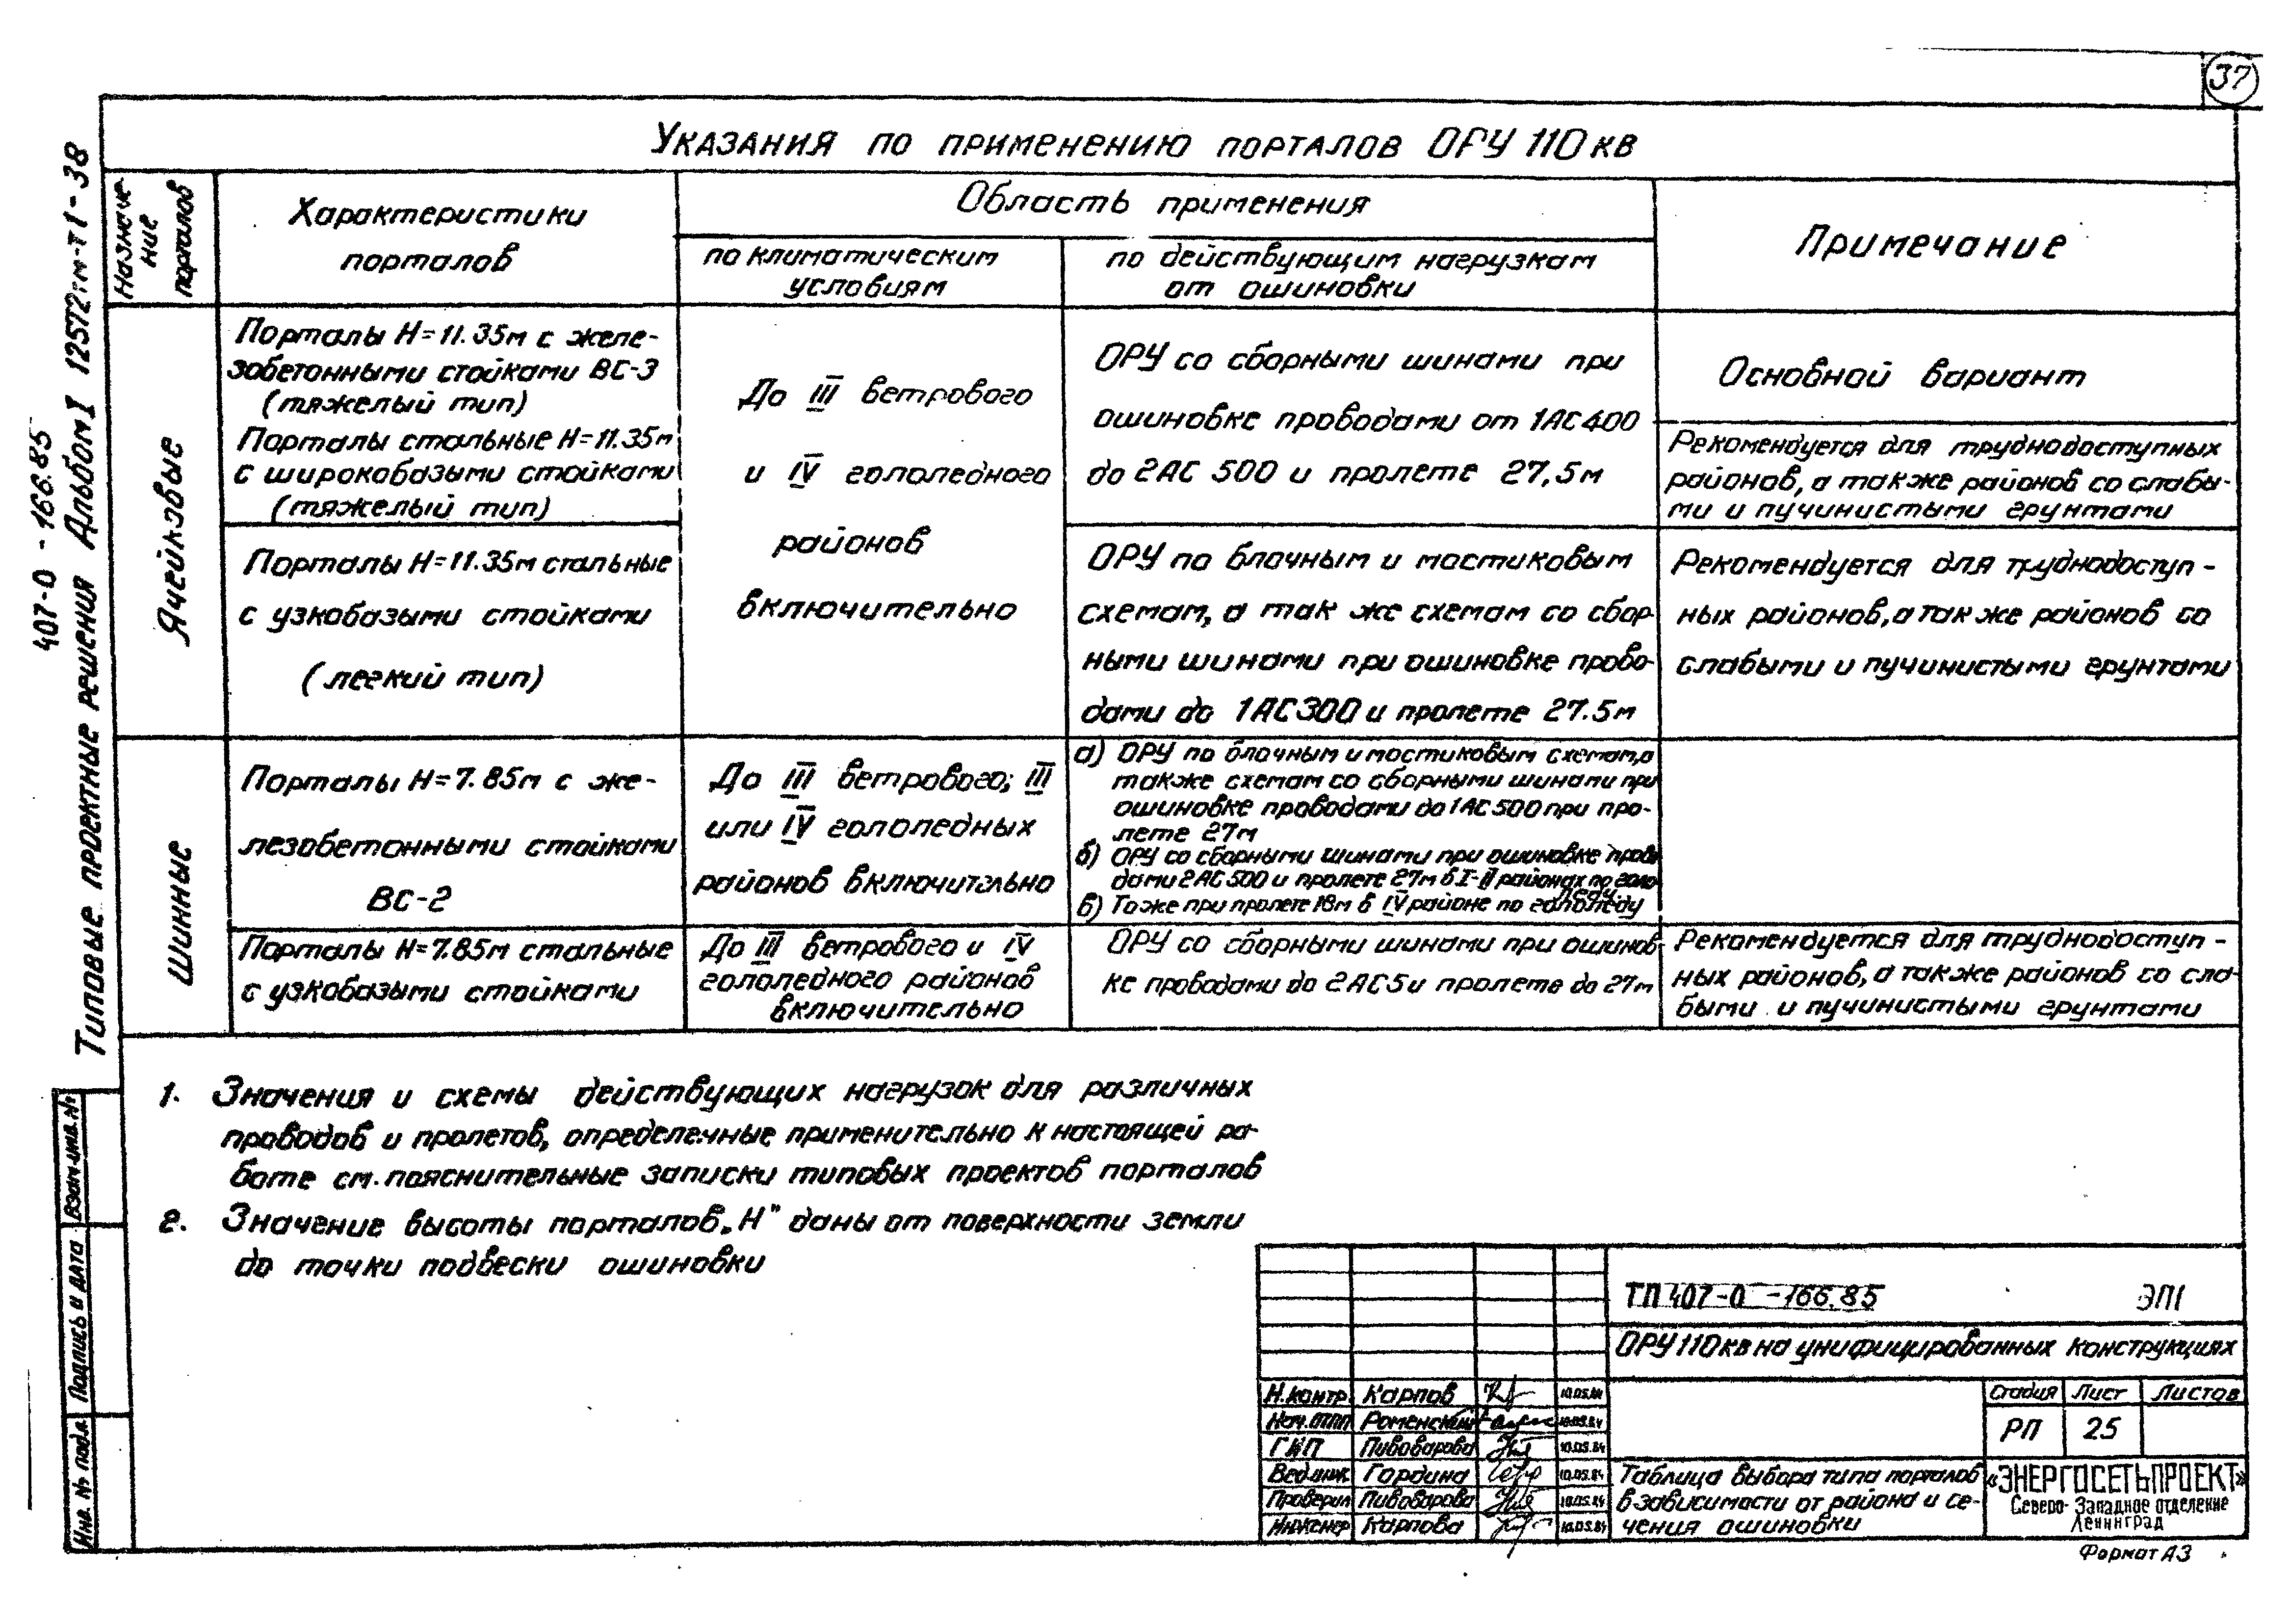 37
Указания по применению порталов ОРУ 110 кв
Назначе
ние
порталов
Характеристики
порталов
Область применения
по климатическим
условиям
по действующим нагрузкам
от ошиновки
Примечание
Ячейковые
Порталы Н=11.35м с желе-
зобетонными стойками ВС-3
(тяжелый тип)
Порталы стальные Н=11.35м
с широкобазыми стойками
(тяжелый тип)
До III ветрового
и IV гололедного
районов
включительно
ОРУ со сборными шинами при
ошиновке проводами от 1АС400
до 2АС 500 и пролете 27,5м
Основной вариант
Рекомендуется для труднодоступных
районов, а также районов со слабы-
ми и пучинистыми грунтами
Порталы Н=11.35м стальные
с узкобазыми стойками
(легкий тип)
ОРУ по блочным и мостиковым
схемам, а так же схемам со сбор-
ными шинами при ошиновке прово-
дами до 1АС300 и пролете 27.5м
Рекомендуется для труднодоступ-
ных районов, а так же районов со
слабыми и пучинистыми грунтами
Шинные
Порталы Н=7.85м с же-
лезобетонными стойками
ВС-2
До III ветрового; III
или IV гололедных
районов включительно
а) ОРУ по блочным и мостиковым схемам, а
также схемам со сборными шинами при
ошиновке проводами до 1АС500 при про-
лете 27м
б) ОРУ со сборными шинами при ошиновке прово
дами 2АС500 и пролете 27м в I-II районах по голо
леду
в) Тоже при пролете 18м в IV районе по гололеду
Порталы Н=7.85м стальные
с узкобазыми стойками
До III ветрового и IV
гололедного районов
включительно
ОРУ со сборными шинами при ошинов-
ке проводами до 2АС5 и пролете до 27м
Рекомендуется для труднодоступ-
ных районов, а также районов со сла-
быми и пучинистыми грунтами
1. Значения и схемы действующих нагрузок для различных
проводов и пролетов, определенные применительно к настоящей ра-
боте см. пояснительные записки типовых проектов порталов
2. Значение высоты порталов „Н" даны от поверхности земли
до точки подвески ошиновки
407-0-166.85
Типовые проектные решения Альбом I 12572тм-т1-38
Взам.инв.№
Подпись и дата
Инв. № подл.
ТП 407-0-166.85 ЭП1
ОРУ 110 кв на унифицированных конструкциях
Н.контр. Карпов 10.05.84
Нач.ОТПП Роменский 10.05.84
ГИП Пивоварова 10.05.84
Вед.инж. Гордина 10.05.84
Проверил Пивоварова 10.05.84
Инженер Карпова 10.05.84
Стадия Лист Листов
РП 25
Таблица выбора типа порталов
в зависимости от района и се-
чения ошиновки
«ЭНЕРГОСЕТЬПРОЕКТ»
Северо-Западное отделение
Ленинград
Формат А3